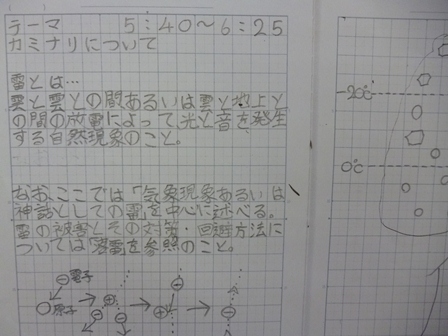 テーマ 5:40〜6:25
カミナリについて
雷とは…
雲と雲との間あるいは雲と地上と
の間の放電によって、光と音を発生
する自然現象のこと。
なお、ここでは「気象現象あるいは
神話としての雷」を中心に述べる。
雷の被害とその対策・回避方法に
ついては「落雷」を参照のこと。
⊖電子
原子
⊕
⊖
⊖
⊕
⊖
⊖
-20℃
0℃